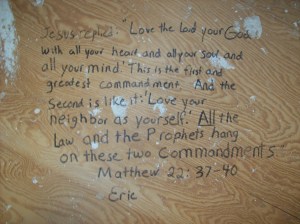 Jesus replied: "Love the Lord your God
with all your heart and all your soul and
all your mind.' This is the first and
greatest commandment. And the
second is like it: 'Love your
neighbor as yourself.' All the
Law and the Prophets hang
on these two Commandments
Matthew 22:37-40
Eric